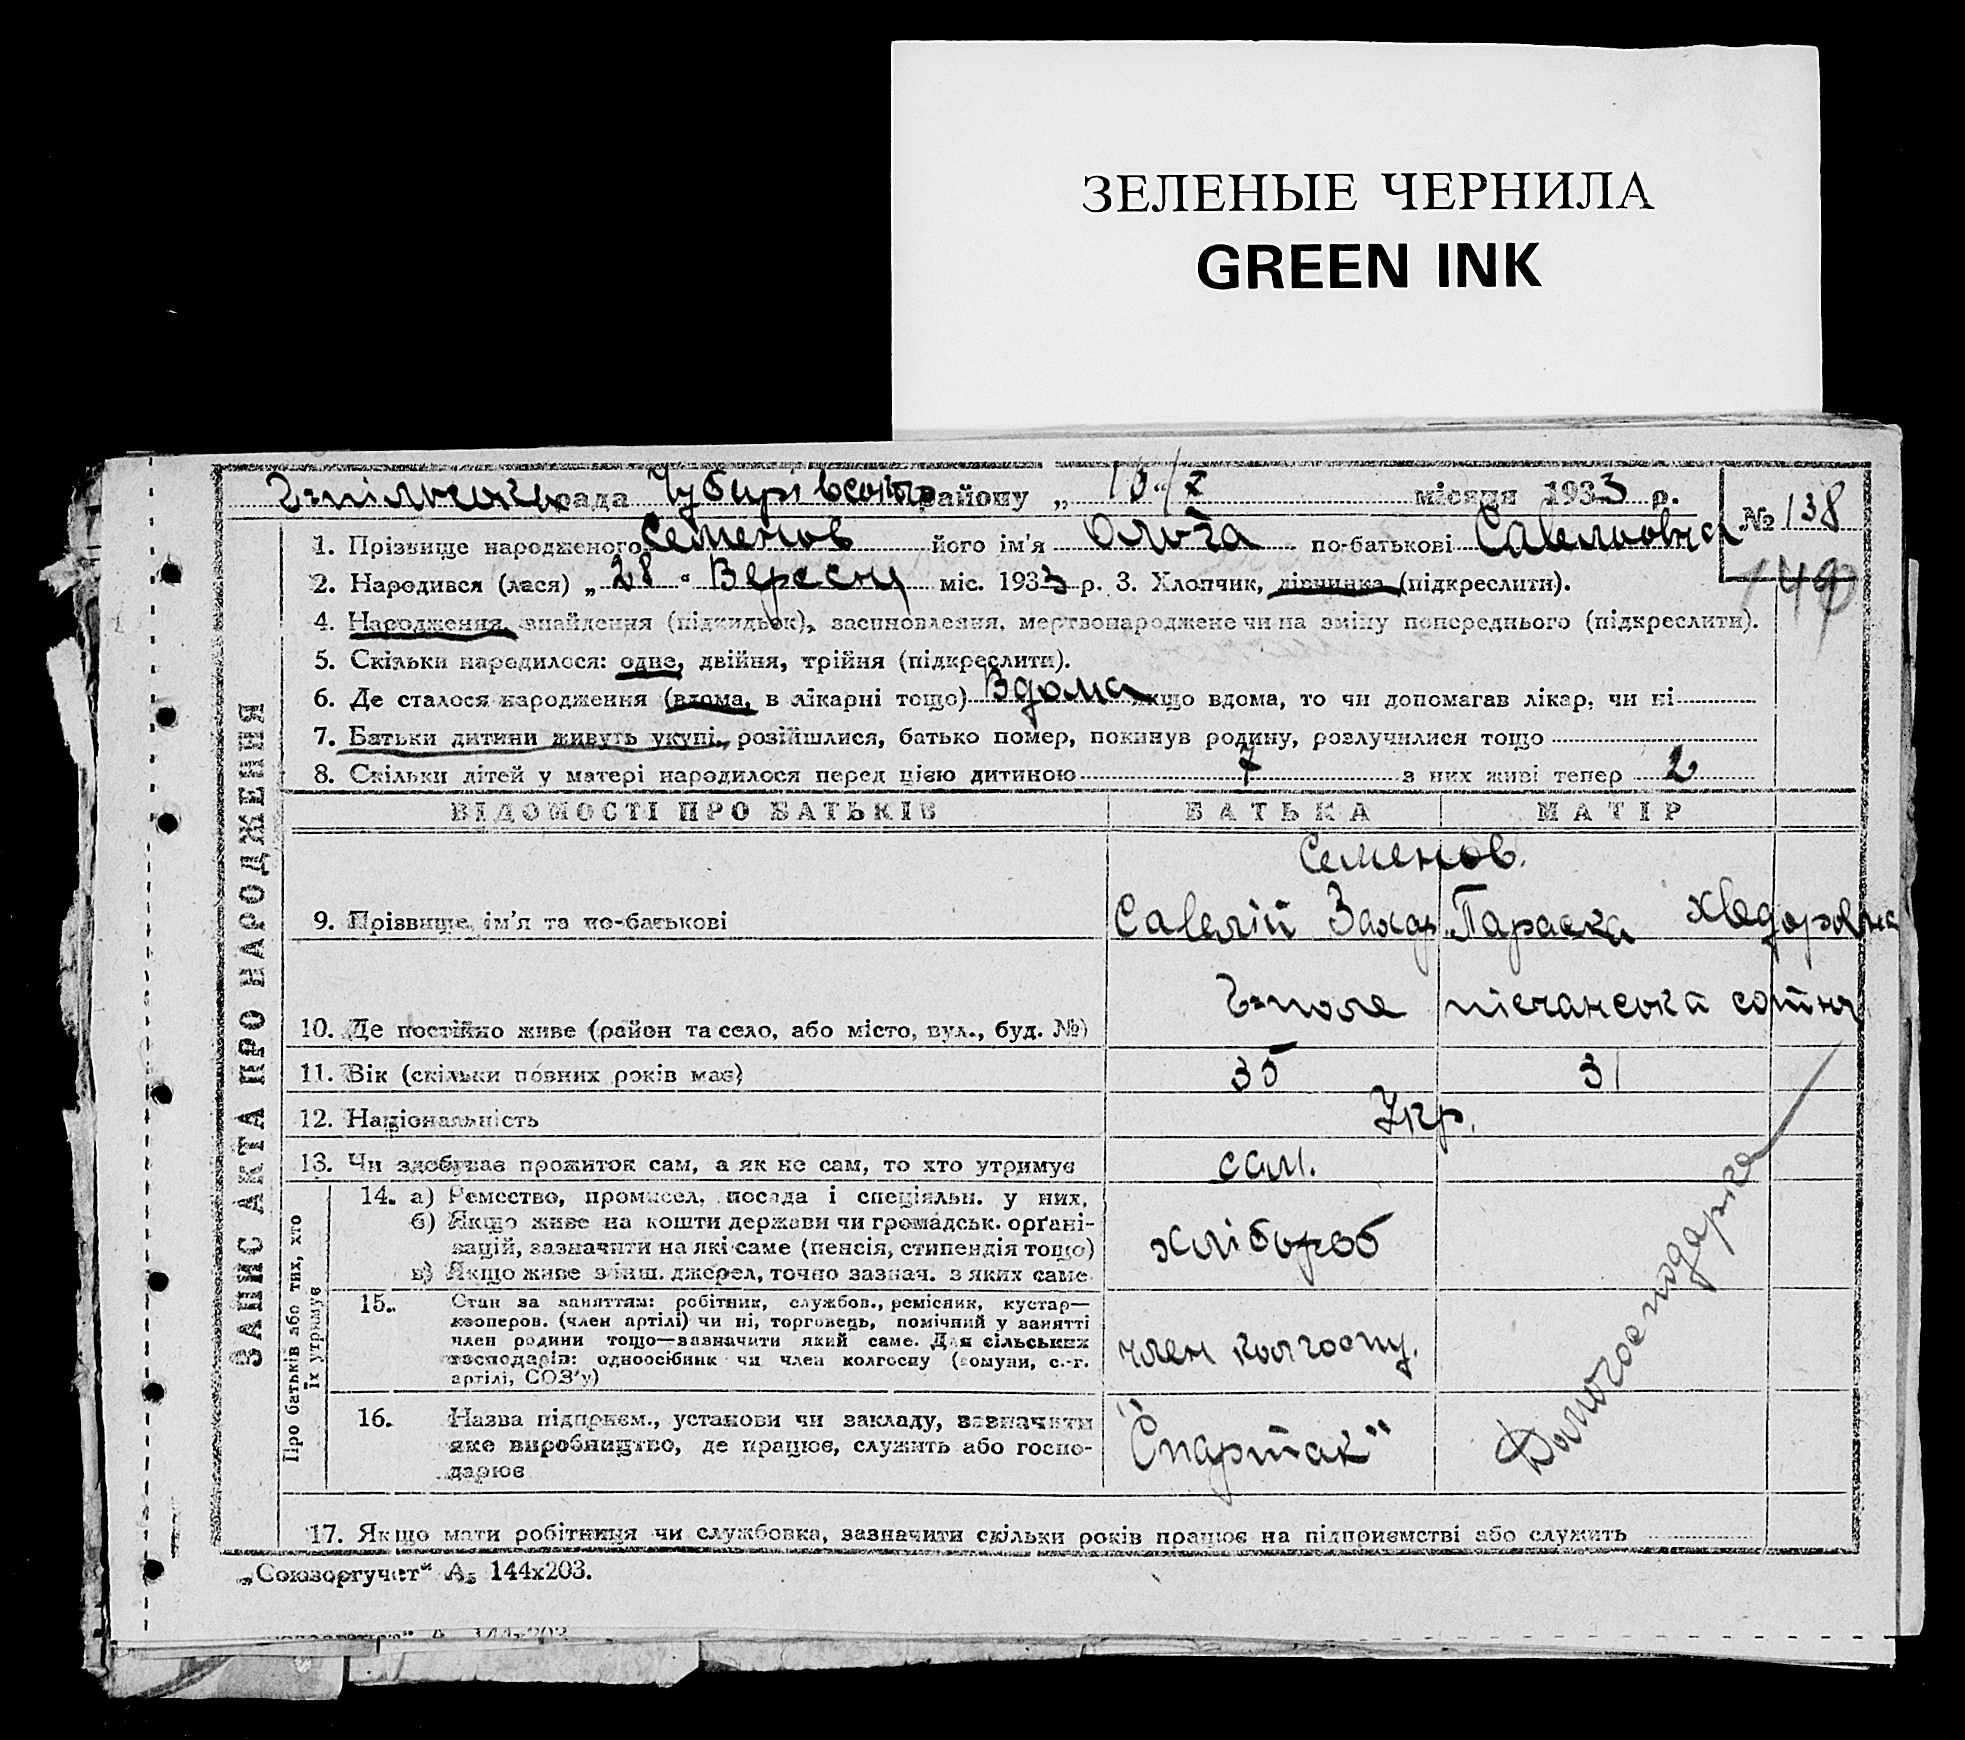 ЗЕЛЕНЫЕ ЧЕРНИЛА
GREEN INK
Г-пільська рада Чубарівського району „ 13 “ X місяця 1933 р.
№ 138
149
1. Прізвище народженого Семенов його ім'я Ольга по-батькові Савельовна
2. Народився (лася) „ 28 “ Вересня міс. 1933 р. 3. Хлопчик, дівчинка (підкреслити).
4. Народження, знайдення (підкидьок), засиновлення, мертвонароджене чи на зміну попереднього (підкреслити).
5. Скільки народилося: одне, двійня, трійня (підкреслити).
6. Де сталося народження (вдома, в лікарні тощо) Вдома якщо вдома, то чи допомагав лікар, чи ні
7. Батьки дитини живуть укупі, розійшлися, батько помер, покинув родину, розлучилися тощо
8. Скільки дітей у матері народилося перед цією дитиною 7 з них живі тепер 2
ЗАПИС АКТА ПРО НАРОДЖЕННЯ
ВІДОМОСТІ ПРО БАТЬКІВ БАТЬКА МАТІР
Семенов.
9. Прізвище, ім'я та по-батькові Савелій Захар. Параска Хведоровна
10. Де постійно живе (район та село, або місто, вул., буд. №) Г-поле піщанська сотня
11. Вік (скільки повних років має) 35 31
12. Національність Укр.
13. Чи здобуває прожиток сам, а як не сам, то хто утримує сам.
Про батьків або тих, хто
їх утримує
14. а) Ремество, промисел, посада і спеціяльн. у них,
б) Якщо живе на кошти держави чи громадськ. орґані-
зацій, зазначити на які саме (пенсія, стипендія тощо)
в) Якщо живе з інш. джерел, точно зазнач. з яких саме
хлібороб
15. Стан за заняттям: робітник, службов., ремісник, кустар—
кооперов. (член артілі) чи ні, торговець, помічний у занятті
член родини тощо—зазначити який саме. Для сільських
господарів: одноосібник чи член колгоспу (комуни, с.-г.
артілі, СОЗ'у)
член колгоспу.
16. Назва підприєм., установи чи закладу, зазначити
яке виробництво, де працює, служить або госпо-
дарює
"Спартак"
Домогосподарка
17. Якщо мати робітниця чи службовка, зазначити скільки років працює на підприємстві або служить
„Союзоргучет“ А5 144х203.